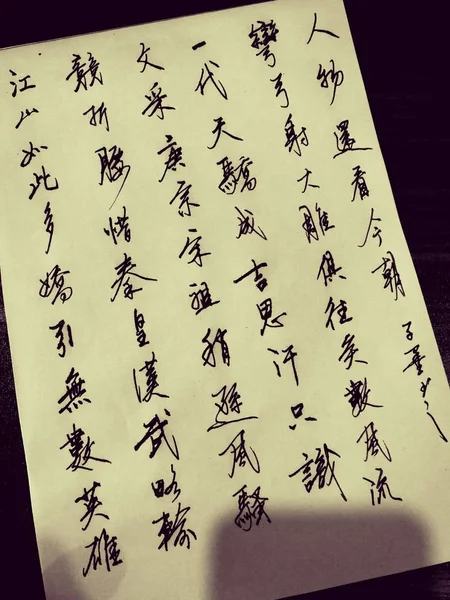 江山如此多嬌引無數英雄
競折腰惜秦皇漢武略輸
文采唐宗宋祖稍遜風騷
一代天驕成吉思汗只識
彎弓射大雕俱往矣數風流
人物還看今朝